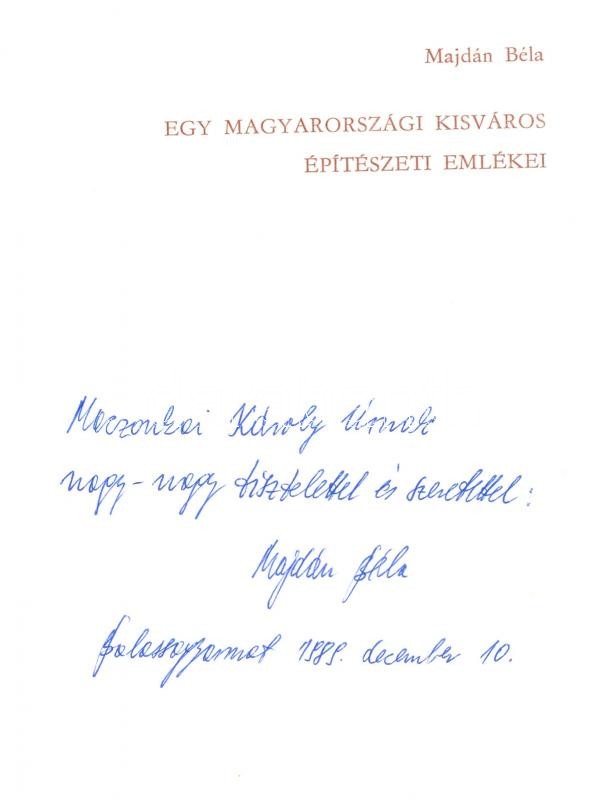 Majdán Béla
EGY MAGYARORSZÁGI KISVÁROS
ÉPÍTÉSZETI EMLÉKEI
Maczonkai Károly Úrnak
nagy-nagy tisztelettel és szeretettel:
Majdán Béla
Balassagyarmat 1989. december 10.